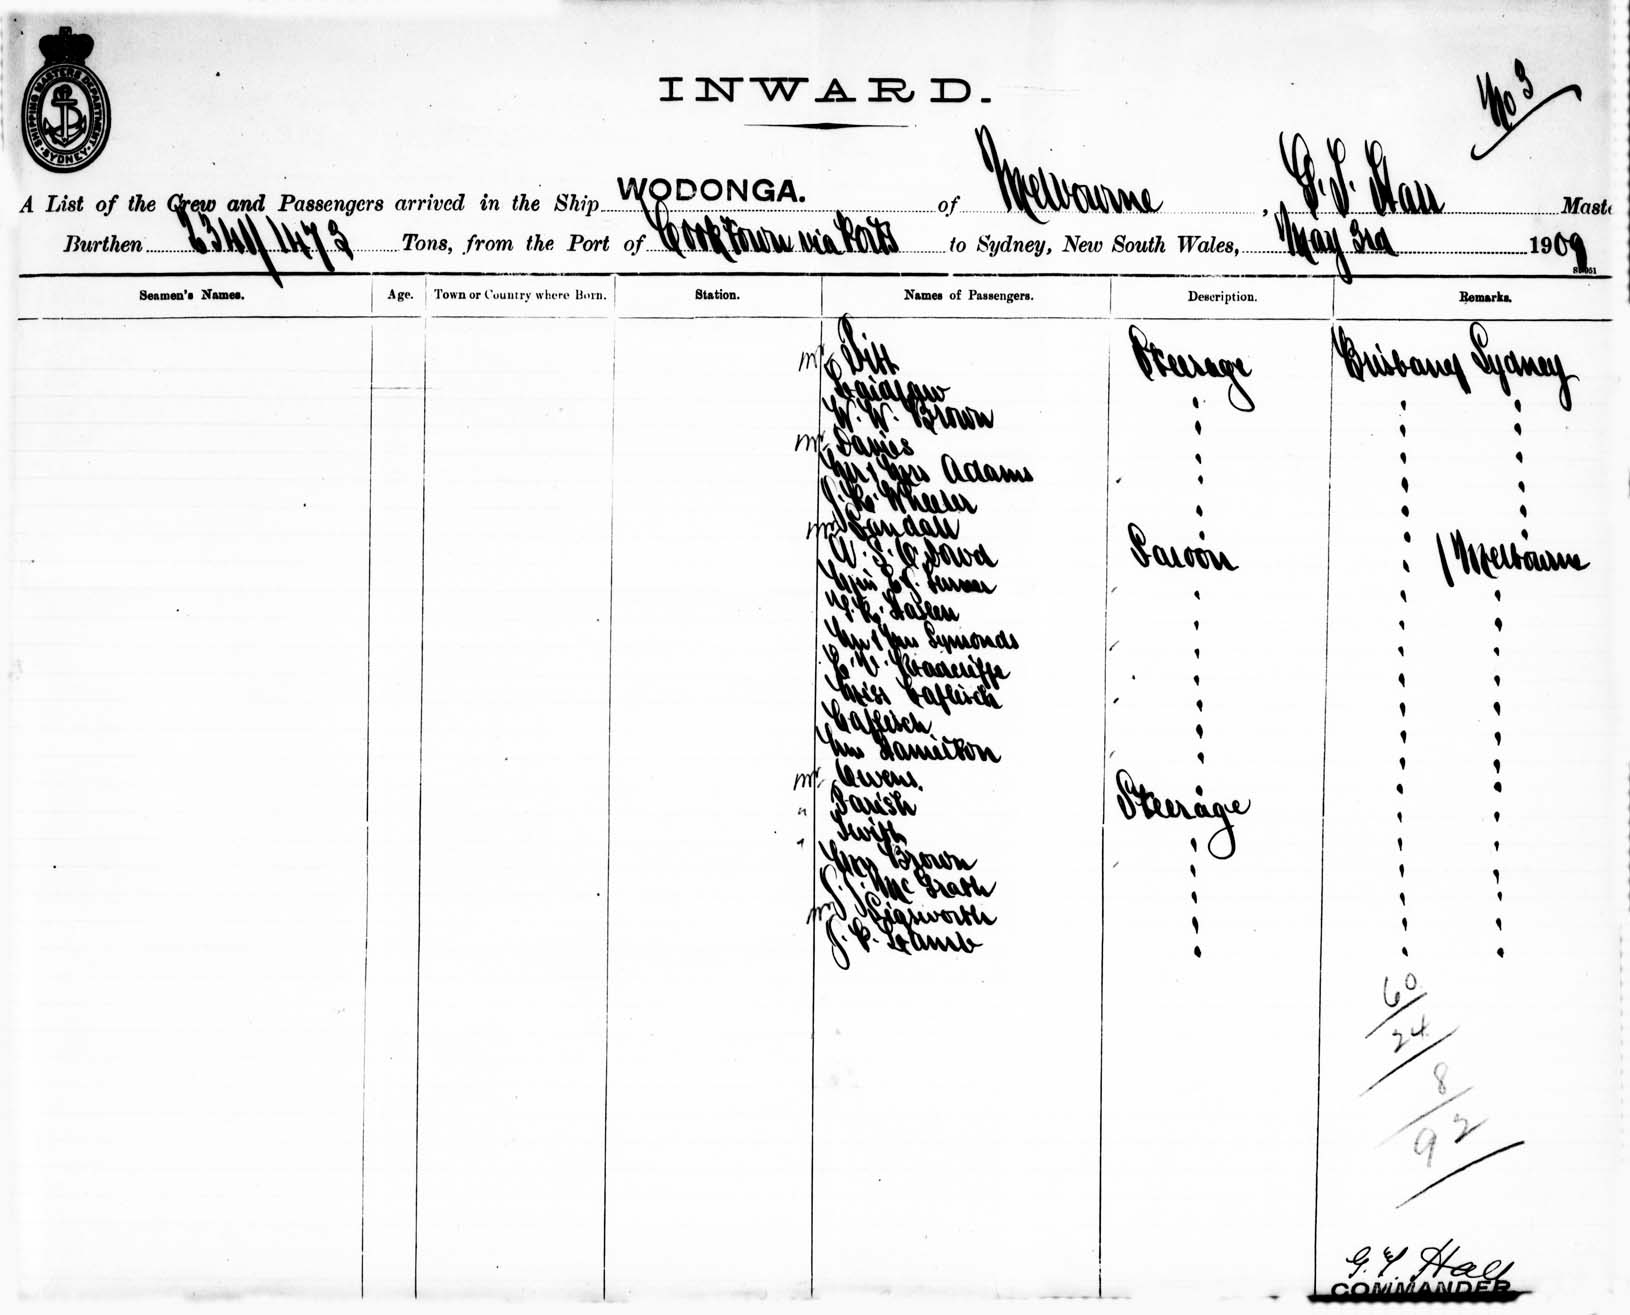 SHIPPING MASTERS DEPARTMENT SYDNEY
INWARD.
No 3
A List of the Crew and Passengers arrived in the Ship WODONGA. of Melbourne, G. S. Hall Maste
Burthen 2341/1473 Tons, from the Port of Cooktown via Ports to Sydney, New South Wales, May 3rd 1909
Seamen's Names. Age. Town or Country where Born. Station. Names of Passengers. Description. Remarks.
Mr Steerage Brisbane / Sydney
Laidlaw " " "
W. W. Brown " " "
Mr Davies " " "
Mr & Mrs Adams " " "
Wheeler " " "
Mrs " " "
Saloon " / Melbourne
" " "
" " "
Mr & Mrs Symonds " " "
Radcliffe " " "
Miss Caflisch " " "
Caflisch " " "
Hamilton " " "
Mr Owens " " "
" Parish Steerage " "
" Swift " " "
Brown " " "
J. J. McGrath " " "
Mrs Sigsworth " " "
J. P. Lamb " " "
60
24
8
92
Hall
COMMANDER